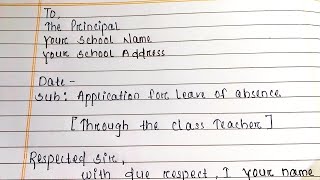 To,
The Principal
Your School Name
Your School Address
Date -
Sub: Application for Leave of absence
[Through the class Teacher]
Respected sir,
with due respect, I your name